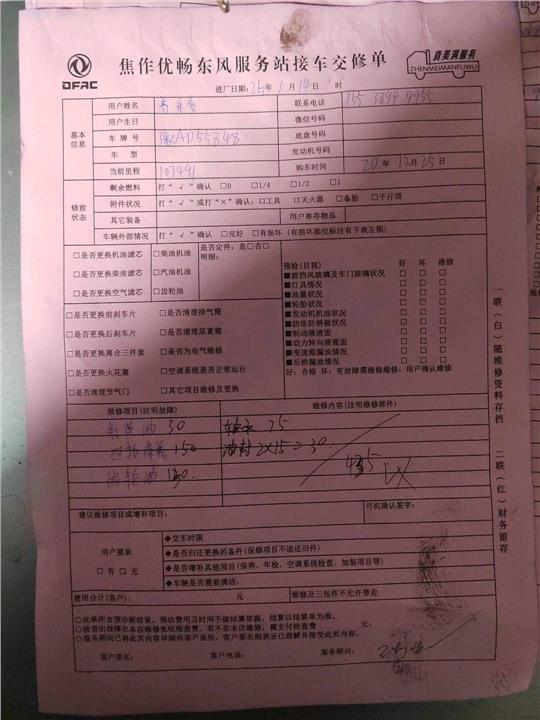 DFAC
焦作优畅东风服务站接车交修单
真美满服务
ZHENMEIMANFUWU
进厂日期:25年1月14日 时
基本信息
用户姓名 联系电话 155 3894 4955
用户生日 微信号码
车牌号 豫AD55848 底盘号码
车型 发动机号码
当前里程 107491 购车时间 20年12月25日
修前状态
剩余燃料 打“√”确认 □0 □1/4 □1/2 □1
附件状况 打“√”或打“×”确认:□工具 □灭火器 □备胎 □千斤顶
其它装备 用户寄存物品
车辆外部情况 打“√”确认 □完好 □有损坏(有损坏部位标注有下表左图)
□是否更换机油滤芯 □柴油机油 是否定件:是□否□
□是否更换柴油滤芯 □汽油机油 明细:
□是否更换空气滤芯 □齿轮油
预检(目视) 好 坏 维修
■前挡风玻璃及车门玻璃状况 □ □ □
■灯具情况 □ □ □
■油量状况 □ □ □
■轮胎状况 □ □ □
■发动机机油状况 □ □ □
■防冻防锈瓶状况 □ □ □
■制动液液面 □ □ □
■动力转向液液面 □ □ □
■变速箱漏油情况 □ □ □
■后桥漏油情况 □ □ □
好:合格 坏:有故障需维修维用,用户确认维修
□是否更换前刹车片 □是否清理排气筒
□是否更换后刹车片 □是否清理尿素箱
□是否更换离合三件套 □是否为电气维修
□是否更换火花塞 □空调系统是否正常运行
□是否清理节气门 □其它项目维修及更换
报修项目(注明故障) 维修内容(注明维修部件)
打黄油 30 轴承 75
四轮保养 150 油封 2×15=30
齿轮油 150. 435
建议维修项目或增补项目: 司机确认签字:
用户要求
□有 □无
◆交车时限
◆是否归还更换的备件(保修项目不退还旧件)
◆是否增补其他项目(保养、年检、空调系统检查、加装项目等)
◆车辆是否需要清洁:
费用合计(客户): 元 维修及三包件不允许带走
○此单所含预诊断结果,预估费用及时间不做结算依据,结算以结算单为准。
○检查出故障在本店维修免收检查费,若不在本店维修,需支付检查费 元。
○服务顾问已将此页内容详细向客户说明,客户签名期表示已理解并接受此页内容。
客户签名: 客户电话: 服务顾问:
一联(白)随维修资料存档 二联(红)财务留存